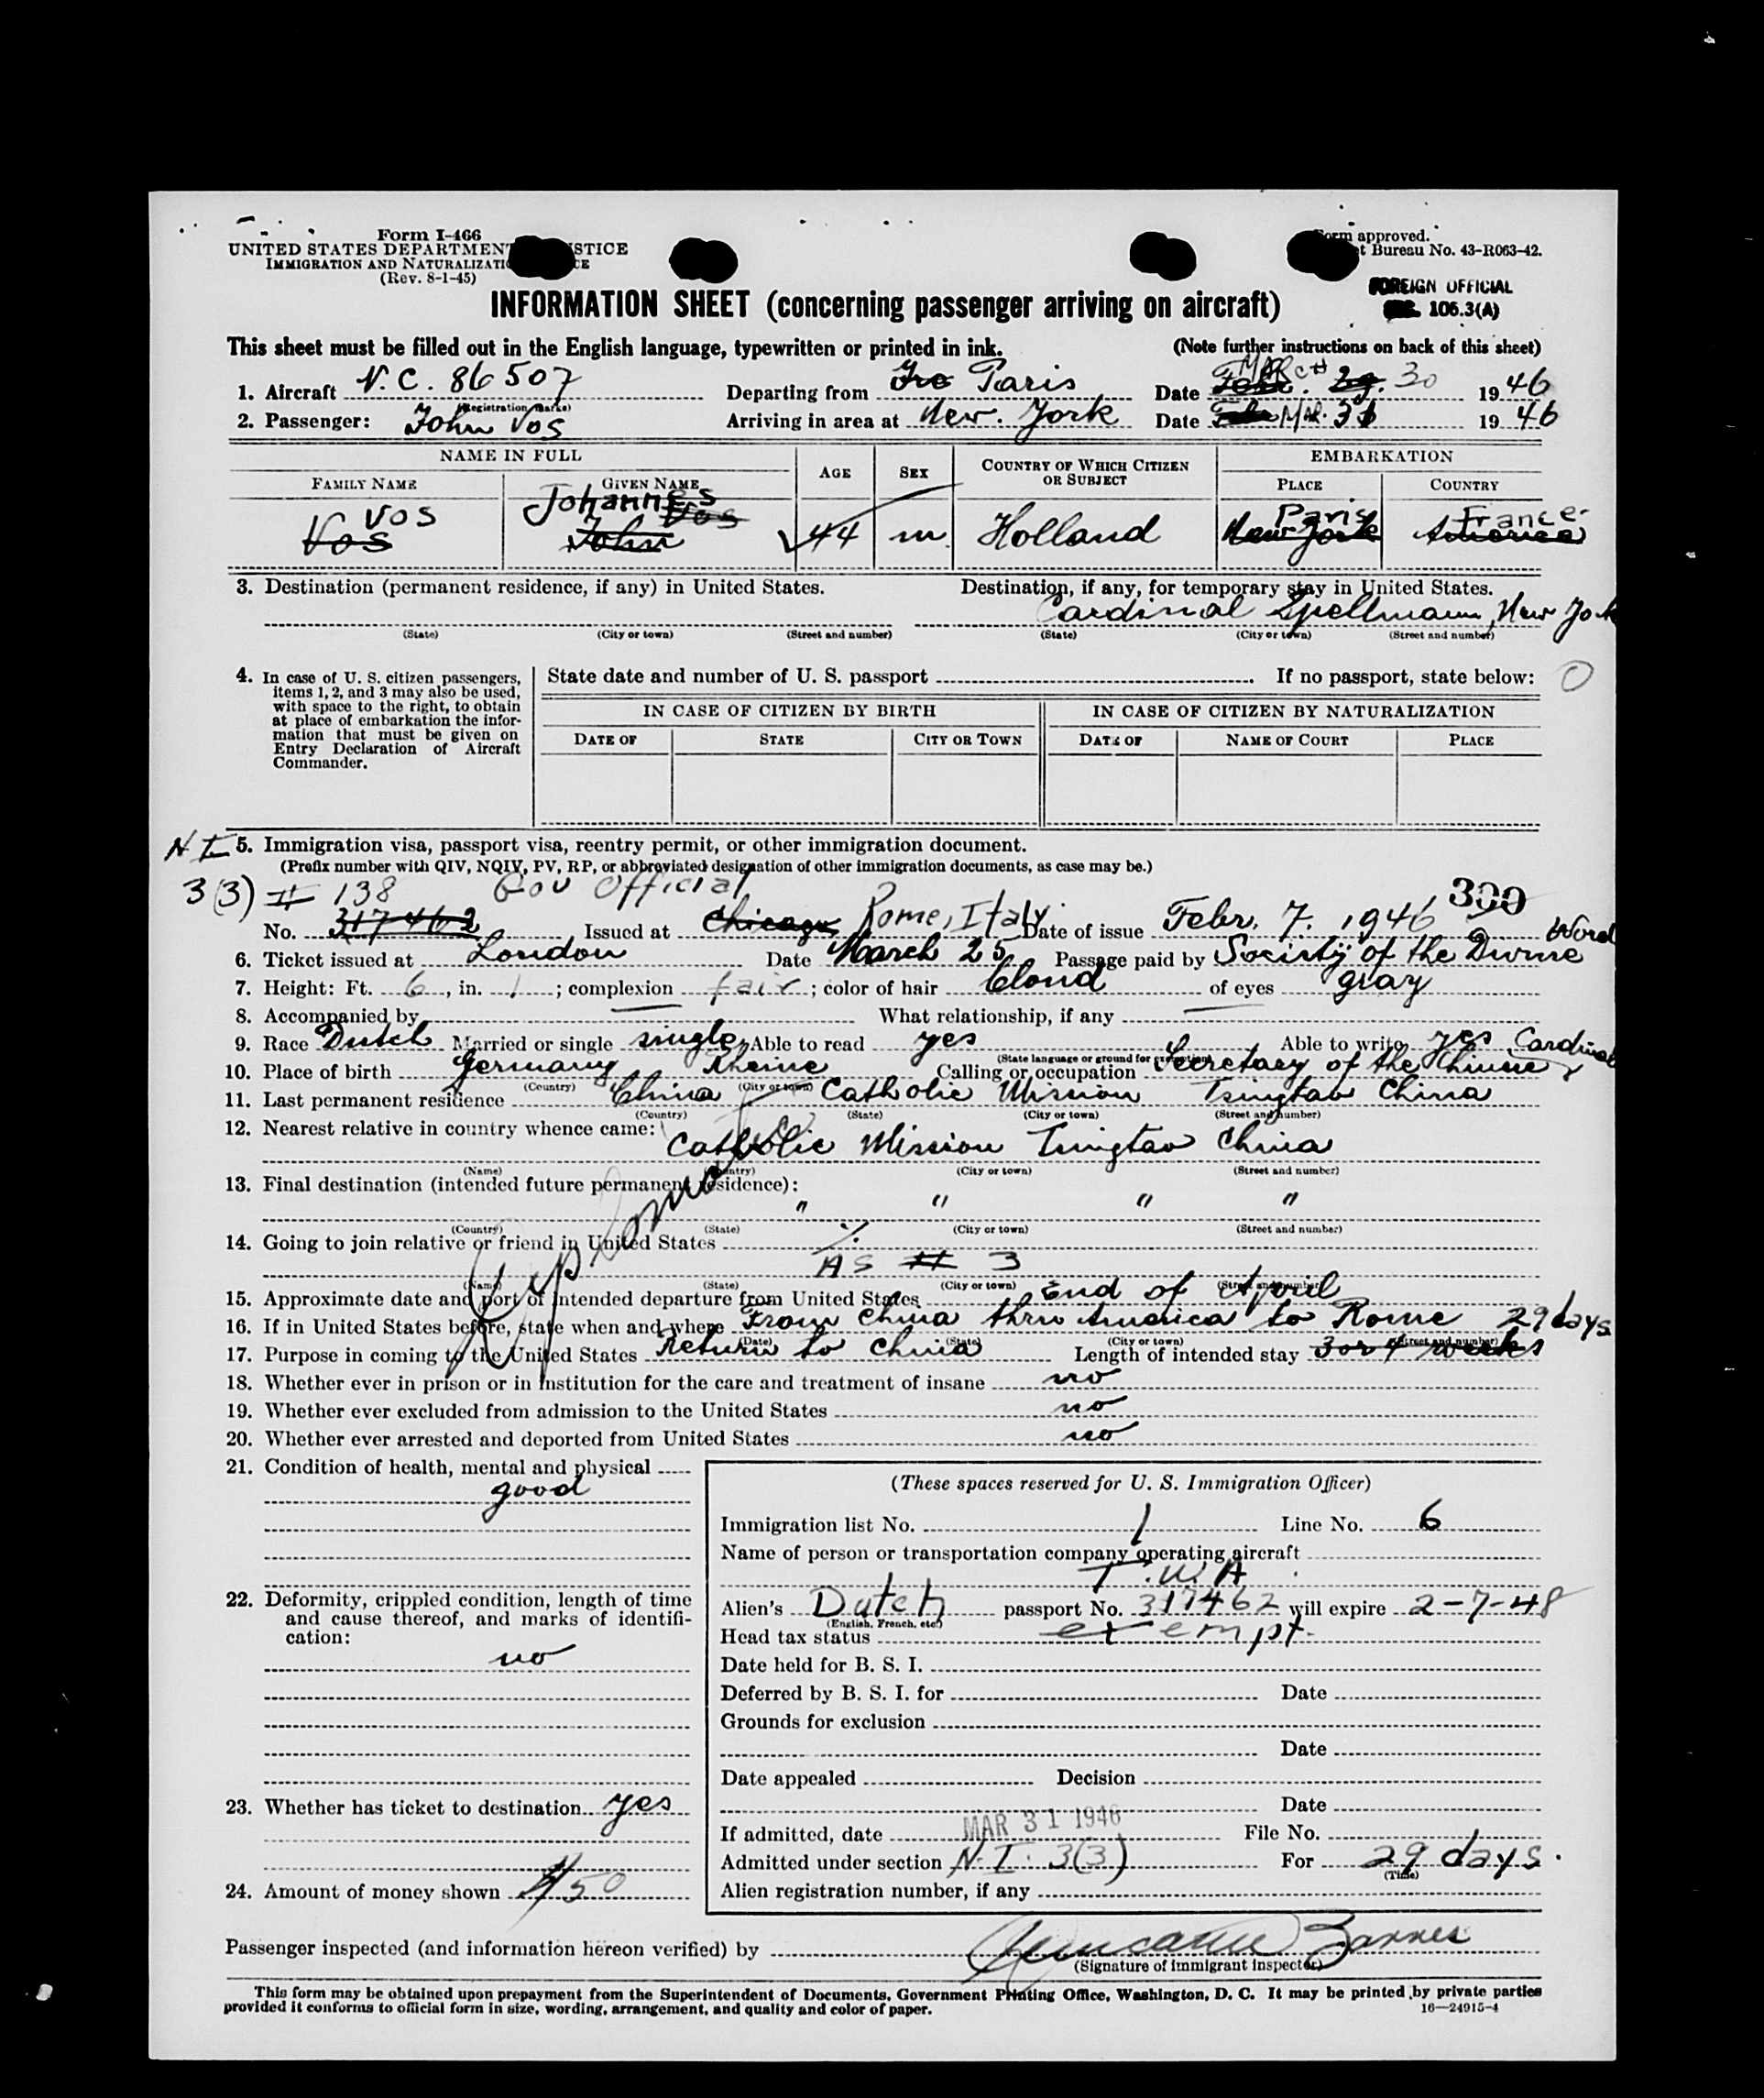 Form I-466
UNITED STATES DEPARTMENT STICE
IMMIGRATION AND NATURALIZATI CE
(Rev. 8-1-45)
Form approved.
t Bureau No. 43-R063-42.
FOREIGN OFFICIAL
106.3(A)
INFORMATION SHEET (concerning passenger arriving on aircraft)
This sheet must be filled out in the English language, typewritten or printed in ink. (Note further instructions on back of this sheet)
1. Aircraft N.C. 86507 Departing from Paris Date MARCH 30 1946
(Registration marks)
2. Passenger: John Vos Arriving in area at New. York Date Mar. 31 1946
NAME IN FULL AGE SEX COUNTRY OF WHICH CITIZEN OR SUBJECT EMBARKATION
FAMILY NAME GIVEN NAME PLACE COUNTRY
VOS Johannes Vos Paris France
Vos John 44 m Holland New York America
3. Destination (permanent residence, if any) in United States. Destination, if any, for temporary stay in United States.
Cardinal Spellmann, New York
(State) (City or town) (Street and number) (State) (City or town) (Street and number)
4. In case of U. S. citizen passengers, items 1, 2, and 3 may also be used, with space to the right, to obtain at place of embarkation the information that must be given on Entry Declaration of Aircraft Commander.
State date and number of U. S. passport If no passport, state below: 0
IN CASE OF CITIZEN BY BIRTH IN CASE OF CITIZEN BY NATURALIZATION
DATE OF STATE CITY OR TOWN DATE OF NAME OF COURT PLACE
N I 5. Immigration visa, passport visa, reentry permit, or other immigration document.
(Prefix number with QIV, NQIV, PV, RP, or abbreviated designation of other immigration documents, as case may be.)
3(3) # 138 Gov Official 300
No. 317462 Issued at Chicago Rome, Italy Date of issue Febr. 7. 1946
6. Ticket issued at London Date March 25 Passage paid by Society of the Divine Word
7. Height: Ft. 6, in. 1; complexion fair; color of hair blond of eyes gray
8. Accompanied by — What relationship, if any —
9. Race Dutch Married or single single Able to read yes Able to write yes
(State language or ground for exemption)
10. Place of birth Germany Rheine Calling or occupation Secretary of the Chinese Cardinal
(Country) (City or town)
11. Last permanent residence China Catholic Mission Tsingtao China
(Country) (State) (City or town) (Street and number)
12. Nearest relative in country whence came:
Catholic Mission Tsingtao China
(Name) (Country) (City or town) (Street and number)
13. Final destination (intended future permanent residence):
" " " "
(Country) (State) (City or town) (Street and number)
Diplomat
14. Going to join relative or friend in United States
AS # 3
(Name) (State) (City or town) (Street and number)
15. Approximate date and port of intended departure from United States End of April
16. If in United States before, state when and where From China thru America to Rome 29 days
(Date) (State) (City or town) (Street and number)
17. Purpose in coming to the United States Return to China Length of intended stay 3 or 4 weeks
18. Whether ever in prison or in institution for the care and treatment of insane no
19. Whether ever excluded from admission to the United States no
20. Whether ever arrested and deported from United States no
21. Condition of health, mental and physical
good
22. Deformity, crippled condition, length of time and cause thereof, and marks of identification:
no
23. Whether has ticket to destination yes
24. Amount of money shown $150
(These spaces reserved for U. S. Immigration Officer)
Immigration list No. 1 Line No. 6
Name of person or transportation company operating aircraft
T.W.A
Alien's Dutch passport No. 317462 will expire 2-7-48
(English, French, etc.)
Head tax status exempt.
Date held for B. S. I.
Deferred by B. S. I. for Date
Grounds for exclusion
Date
Date appealed Decision
Date
If admitted, date MAR 31 1946 File No.
Admitted under section N.I. 3(3) For 29 days.
(Time)
Alien registration number, if any
Passenger inspected (and information hereon verified) by Barnes
(Signature of immigrant inspector)
This form may be obtained upon prepayment from the Superintendent of Documents, Government Printing Office, Washington, D. C. It may be printed by private parties
provided it conforms to official form in size, wording, arrangement, and quality and color of paper. 16—24915-4